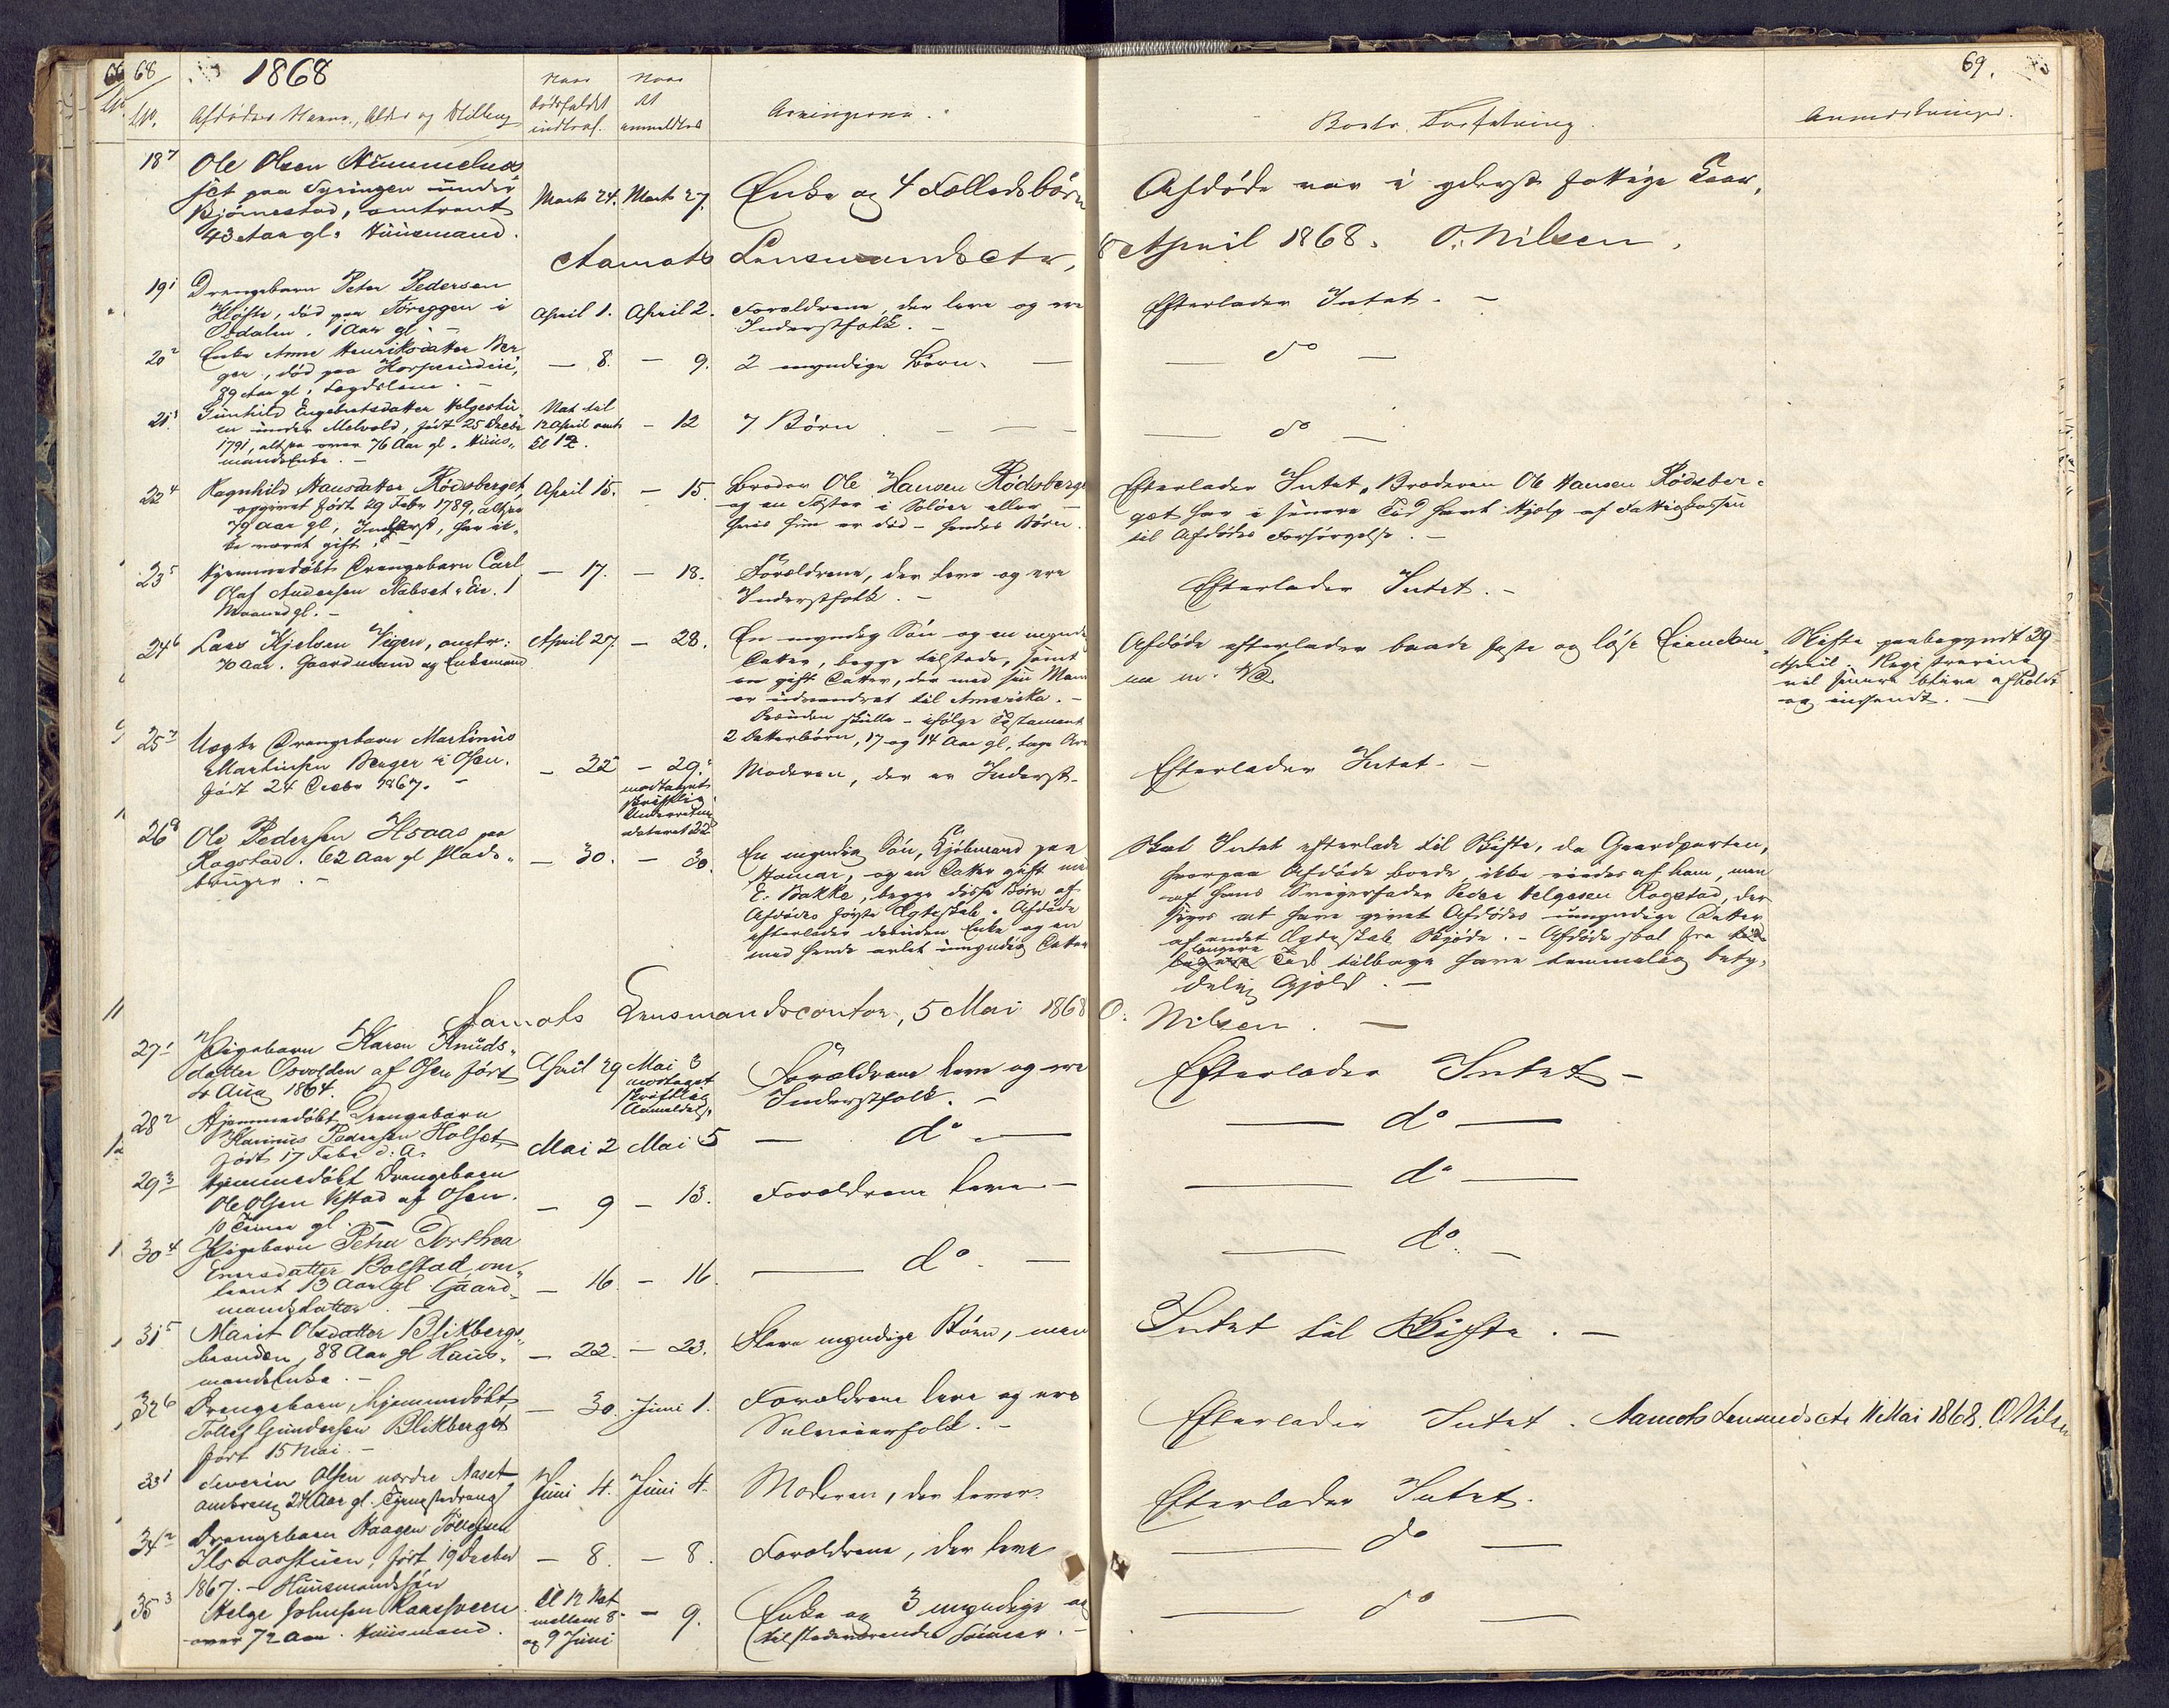 68 1868 69.
No. Afdødes Navn, Alder og Stilling Naar dødsfaldet indtraf. Naar det anmeldtes Arvingerne. Boets Forfatning. Anmerkninger.
18 7 Ole Olsen
paa Syringen under
Bjørnestad, omtrent
43 Aar gl. Huusmand.
Marts 24. Marts 27. Enke og 4 Fælledsbørn
Afdøde var i yderst fattige Kaar.
Aamots Lensmandsctr, 8 April 1868. O. Nilsen.
19 1 Drengebarn Peter Pedersen
død paa i
Osdalen. 1 Aar gl.
April 1. April 2. Forældrene, der leve og ere
Inderstfolk. –
Efterlader Intet. –
20 2 Enke Anne Henriksdatter Ber,
ger, død paa
89 Aar gl., Lægdslem. –
— 8. — 9. 2 myndige Børn. —
— do —
21 3 Gunhild Engebretsdatter Helgestu,
en under Melvold, født 25 Decbr
1791, altsaa over 76 Aar gl. Huus„
mandsenke. –
Nat til
12 April omtr
Kl 12.
— 12 7 Børn — —
— do —
22 4 Ragnhild Hansdatter Rødsberget,
opgivet født 29 Febr 1789, altsaa
79 Aar gl, Inderst, har ik„
ke været gift. –
April 15. — 15. Broder Ole Hansen Rødsberget
og en Søster i Solør eller –
hvis hun er død – hendes Børn.
Efterlader Intet. Broderen Ole Hansen Rødsber„
get har i senere Tid havt Hjelp af Fattigkassen
til Afdødes Forsørgelse. –
23 5 Hjemmedøbt Drengebarn Carl
Olaf Andersen 1
Maaned gl. –
— 17. — 18. Forældrene, der leve og ere
Inderstfolk. –
Efterlader Intet. –
24 6 Lars Kjelsen Vigen, omtr:
70 Aar. Gaardmand og Enkemand
April 27. — 28. En myndig Søn og en myndig
Datter, begge tilstede, samt
en gift Datter, der med sin Mand
er udvandret til Amerika. –
Desuden skulle – ifølge Testament
2 Datterbørn, 17 og 14 Aar gl, tage Arv
Afdøde efterlader baade faste og løse Eiendom„
me
Skifte paabegyndt 29
April. Registrering
vil senere blive afholdt
og indsendt. –
25 7 Uægte Drengebarn Martinus
Martinsen Berger i Osen.
født 24 Decbr 1867. –
— 22 — 29.
modtaget
skriftlig
Underretning
dateret 22
Moderen, der er Inderst.
Efterlader Intet. –
26 8 Ole Pedersen paa
Rogstad. 62 Aar gl Plads„
bruger. –
— 30. — 30. En myndig Søn, Kjøbmand paa
Hamar, og en Datter gift med
E. Bakke, begge disse Børn af
Afdødes første Ægteskab. Afdøde
efterlader desuden Enke og en
med hende avlet umyndig Datter
Skal Intet efterlade til Skifte, da Gaardparten,
hvorpaa Afdøde boede, ikke eiedes af ham, men
af hans Svigerfader Peder Helgesen Rogstad, der
siges at have givet Afdødes umyndige Datter
af andet Ægteskab Skjøde. – Afdøde skal fra
længere
Tid tilbage have temmelig bety„
delig Gjæld. –
Aamots Lensmandscontor, 5 Mai 1868 O. Nilsen. –
27 1 Pigebarn Karen Knuds„
datter Osvolden af Osen født
Aug 1864.
April 29 Mai 3
modtaget
skriftlig
Anmeldelse
Forældrene leve og ere
Inderstfolk. –
Efterlader Intet –
28 2 Hjemmedøbt Drengebarn
Pedersen Holset
født 17 Febr d. A.
Mai 2 Mai 5 — do —
— do —
29 3 Hjemmedøbt Drengebarn
Ole Olsen af Osen.
10 Timer gl.
— 9 — 13. Forældrene leve –
— do —
30 4 Pigebarn Petra Dorthea
Enersdatter Bolstad om„
trent 13 Aar gl. Gaard„
mandsdatter. –
— 16. — 16. — do. —
— do. —
31 5 Marit Olsdatter Blikbergs„
88 Aar gl Huus„
mandsenke. –
— 22. — 23. Flere myndige Børn, men
Intet til Skifte. –
32 6 Drengebarn, hjemmedøbt
Tollef Gundersen Blikberget
født 15 Mai. –
— 30. Juni 1. Forældrene leve og ere
Selveierfolk. –
Efterlader Intet. Aamots Lensmdsctr Mai 1868. O Nilsen
33 1 Severin Olsen nordre Naset
omtrent 24 Aar gl. Tjenestedreng
Juni 4. Juni 4. Moderen, der lever.
Efterlader Intet.
34 2 Drengebarn Haagen Tollefsen
født 19 Decbr
1867. – Huusmandssøn
— 8. — 8. Forældrene, der leve
— do —
35 3 Helge Johnsen
over 72 Aar. Huusmand.
Kl 12 Nat
mellem 8
og 9 Juni
— 9. Enke og 3 myndige og
tilstedeværende Sønner. –
— do —